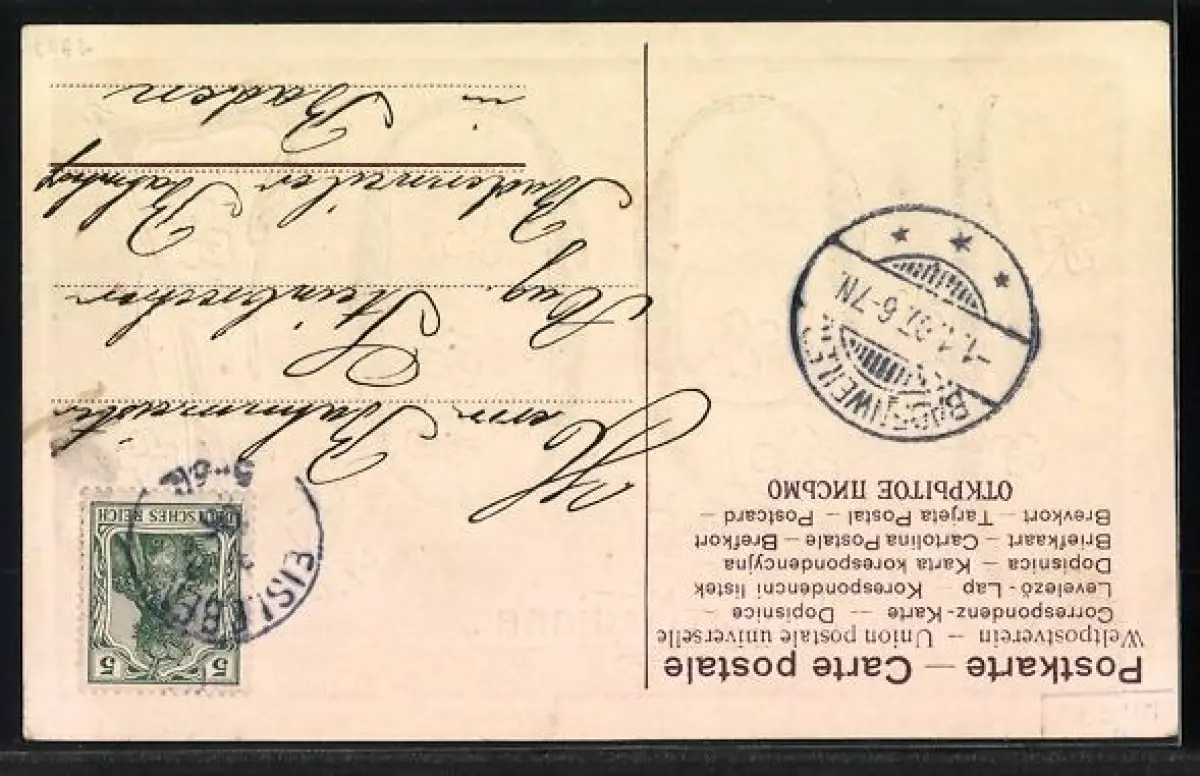 Postkarte — Carte postale
Weltpostverein — Union postale universelle
Correspondenz-Karte — Dopisnice
Levelező-Lap — Korespondencni listek
Dopisnica — Karta korespondencyjna
Briefkaart — Cartolina Postale — Brefkort
Brevkort — Tarjeta Postal — Postcard
ОТКРЫТОЕ ПИСЬМО
BADENWEILER
-1.1.07. 6-7N.
5
DEUTSCHES REICH
EISLEBEN
Herrn Bahnmeister
Aug. Steinbrecher
Badenweiler Bahnhof
in Baden